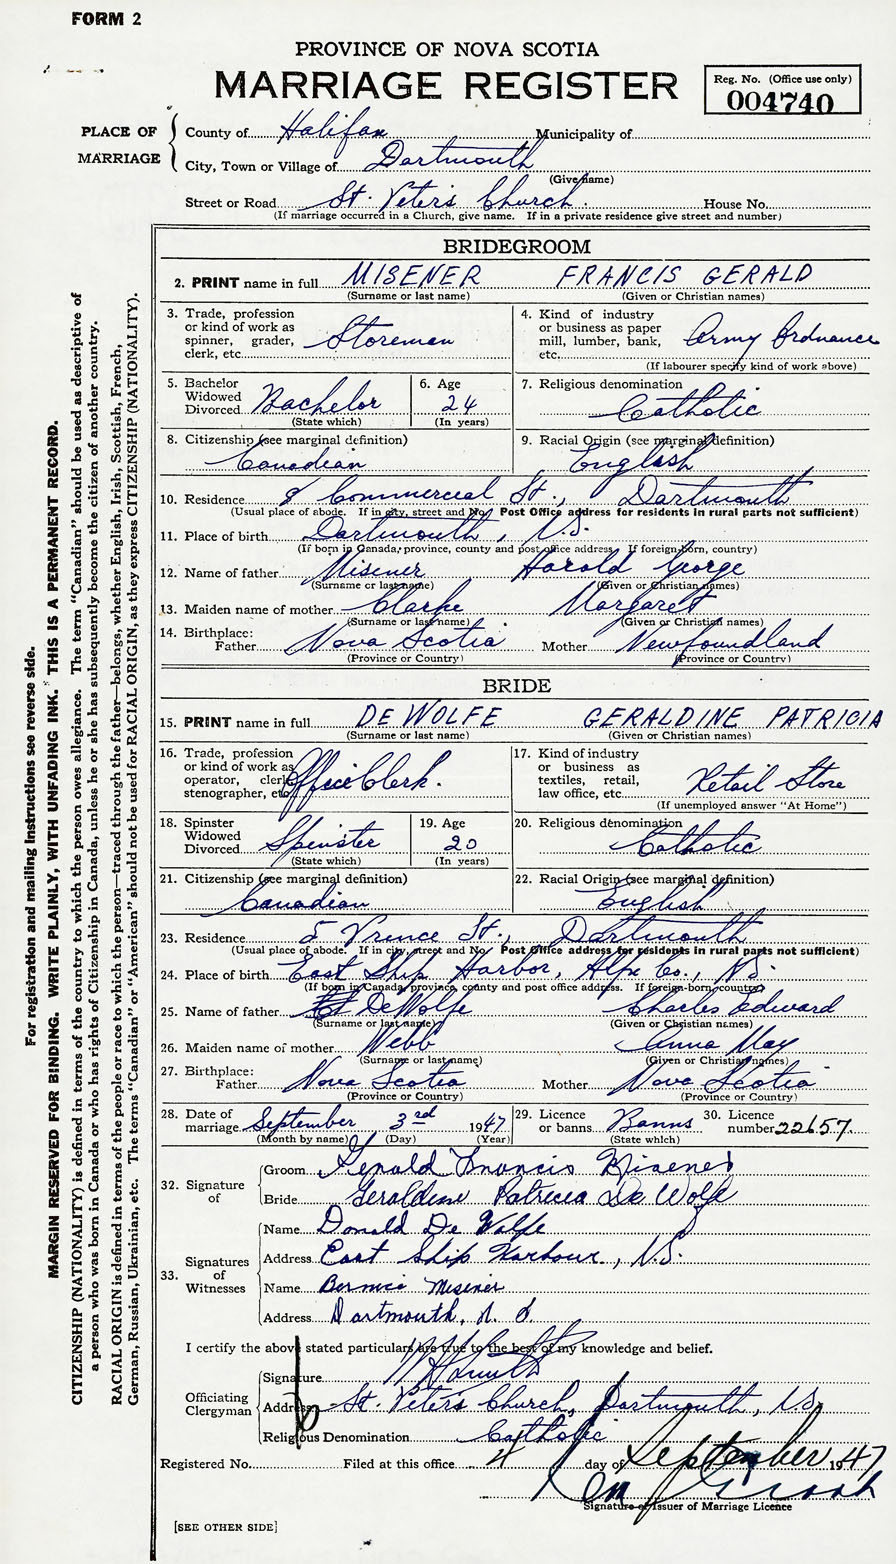 FORM 2
PROVINCE OF NOVA SCOTIA
MARRIAGE REGISTER
Reg. No. (Office use only)
004740
PLACE OF MARRIAGE
County of Halifax Municipality of
City, Town or Village of Dartmouth
(Give name)
Street or Road St. Peter's Church. House No.
(If marriage occurred in a Church, give name. If in a private residence give street and number)
BRIDEGROOM
2. PRINT name in full MISENER FRANCIS GERALD
(Surname or last name) (Given or Christian names)
3. Trade, profession or kind of work as spinner, grader, clerk, etc. Storeman
4. Kind of industry or business as paper mill, lumber, bank, etc. Army Ordnance
(If labourer specify kind of work above)
5. Bachelor Widowed Divorced Bachelor
(State which)
6. Age 24
(In years)
7. Religious denomination Catholic
8. Citizenship (see marginal definition) Canadian
9. Racial Origin (see marginal definition) English
10. Residence 8 Commercial St., Dartmouth
(Usual place of abode. If in city, street and No. Post Office address for residents in rural parts not sufficient)
11. Place of birth Dartmouth, N.S.
(If born in Canada, province, county and post office address. If foreign-born, country)
12. Name of father Misener Harold George
(Surname or last name) (Given or Christian names)
13. Maiden name of mother Clarke Margaret
(Surname or last name) (Given or Christian names)
14. Birthplace: Father Nova Scotia Mother Newfoundland
(Province or Country) (Province or Country)
BRIDE
15. PRINT name in full DE WOLFE GERALDINE PATRICIA
(Surname or last name) (Given or Christian names)
16. Trade, profession or kind of work as operator, clerk, stenographer, etc. Office Clerk.
17. Kind of industry or business as textiles, retail, law office, etc. Retail Store
(If unemployed answer "At Home")
18. Spinster Widowed Divorced Spinster
(State which)
19. Age 20
(In years)
20. Religious denomination Catholic
21. Citizenship (see marginal definition) Canadian
22. Racial Origin (see marginal definition) English
23. Residence 5 Prince St., Dartmouth
(Usual place of abode. If in city, street and No. Post Office address for residents in rural parts not sufficient)
24. Place of birth East Ship Harbor, Hfx Co., N.S.
(If born in Canada, province, county and post office address. If foreign-born country)
25. Name of father De Wolfe Charles Edward
(Surname or last name) (Given or Christian names)
26. Maiden name of mother Webb Anna May
(Surname or last name) (Given or Christian names)
27. Birthplace: Father Nova Scotia Mother Nova Scotia
(Province or Country) (Province or Country)
28. Date of marriage September 3rd 1947
(Month by name) (Day) (Year)
29. Licence or banns Banns
(State which)
30. Licence number 22657.
32. Signature of
Groom Gerald Francis Misener
Bride Geraldine Patricia De Wolfe
33. Signatures of Witnesses
Name Donald De Wolfe
Address East Ship Harbour, N.S.
Name Bernice Misener
Address Dartmouth, N.S.
I certify the above stated particulars are true to the best of my knowledge and belief.
Officiating Clergyman
Signature
Address St. Peter's Church, Dartmouth, N.S.
Religious Denomination Catholic
Registered No. Filed at this office 4 day of September 1947
Signature of Issuer of Marriage Licence
[SEE OTHER SIDE]
For registration and mailing instructions see reverse side.
MARGIN RESERVED FOR BINDING. WRITE PLAINLY, WITH UNFADING INK. THIS IS A PERMANENT RECORD.
CITIZENSHIP (NATIONALITY) is defined in terms of the country to which the person owes allegiance. The term "Canadian" should be used as descriptive of
a person who was born in Canada or who has rights of Citizenship in Canada, unless he or she has subsequently become the citizen of another country.
RACIAL ORIGIN is defined in terms of the people or race to which the person—traced through the father—belongs, whether English, Irish, Scottish, French,
German, Russian, Ukrainian, etc. The terms "Canadian" or "American" should not be used for RACIAL ORIGIN, as they express CITIZENSHIP (NATIONALITY).